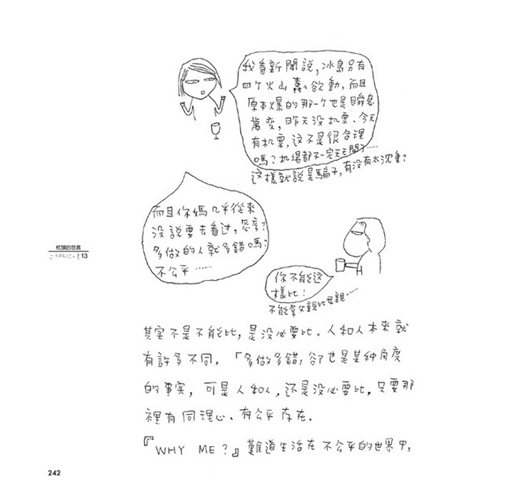 我看新聞說，冰島另有
四个火山蠢蠢欲動，而且
原本爆的那一个也是瞬息
萬变，昨天没机票、今天
有机票，这不是很合理
嗎？机場都不一定天天開了……
这樣就說是騙子，有没有太沈重？
而且你媽几乎從來
没説要去看过，
多做的人就多錯嗎？
不公平……
你不能这
樣比！
不能拿父親比母親……
其实不是不能比，是没必要比，人和人本來就
有許多不同，「多做多錯」卻也是某种角度
的事实，可是人和人，还是没必要比，只要那
裡有同理心、有公平存在．
『WHY ME？』難道生活在不公平的世界中，
13
242